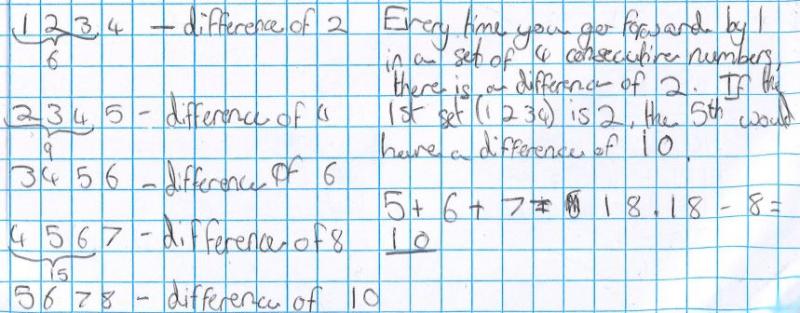 1 2 3 4 - difference of 2
6
2 3 4 5 - difference of 4
9
3 4 5 6 - difference of 6
4 5 6 7 - difference of 8
15
5 6 7 8 - difference of 10
Every time you go forward by 1
in a set of 4 consecutive numbers,
there is a difference of 2. If the
1st set (1 2 3 4) is 2, the 5th would
have a difference of 10.
5 + 6 + 7 = 18. 18 - 8 =
10